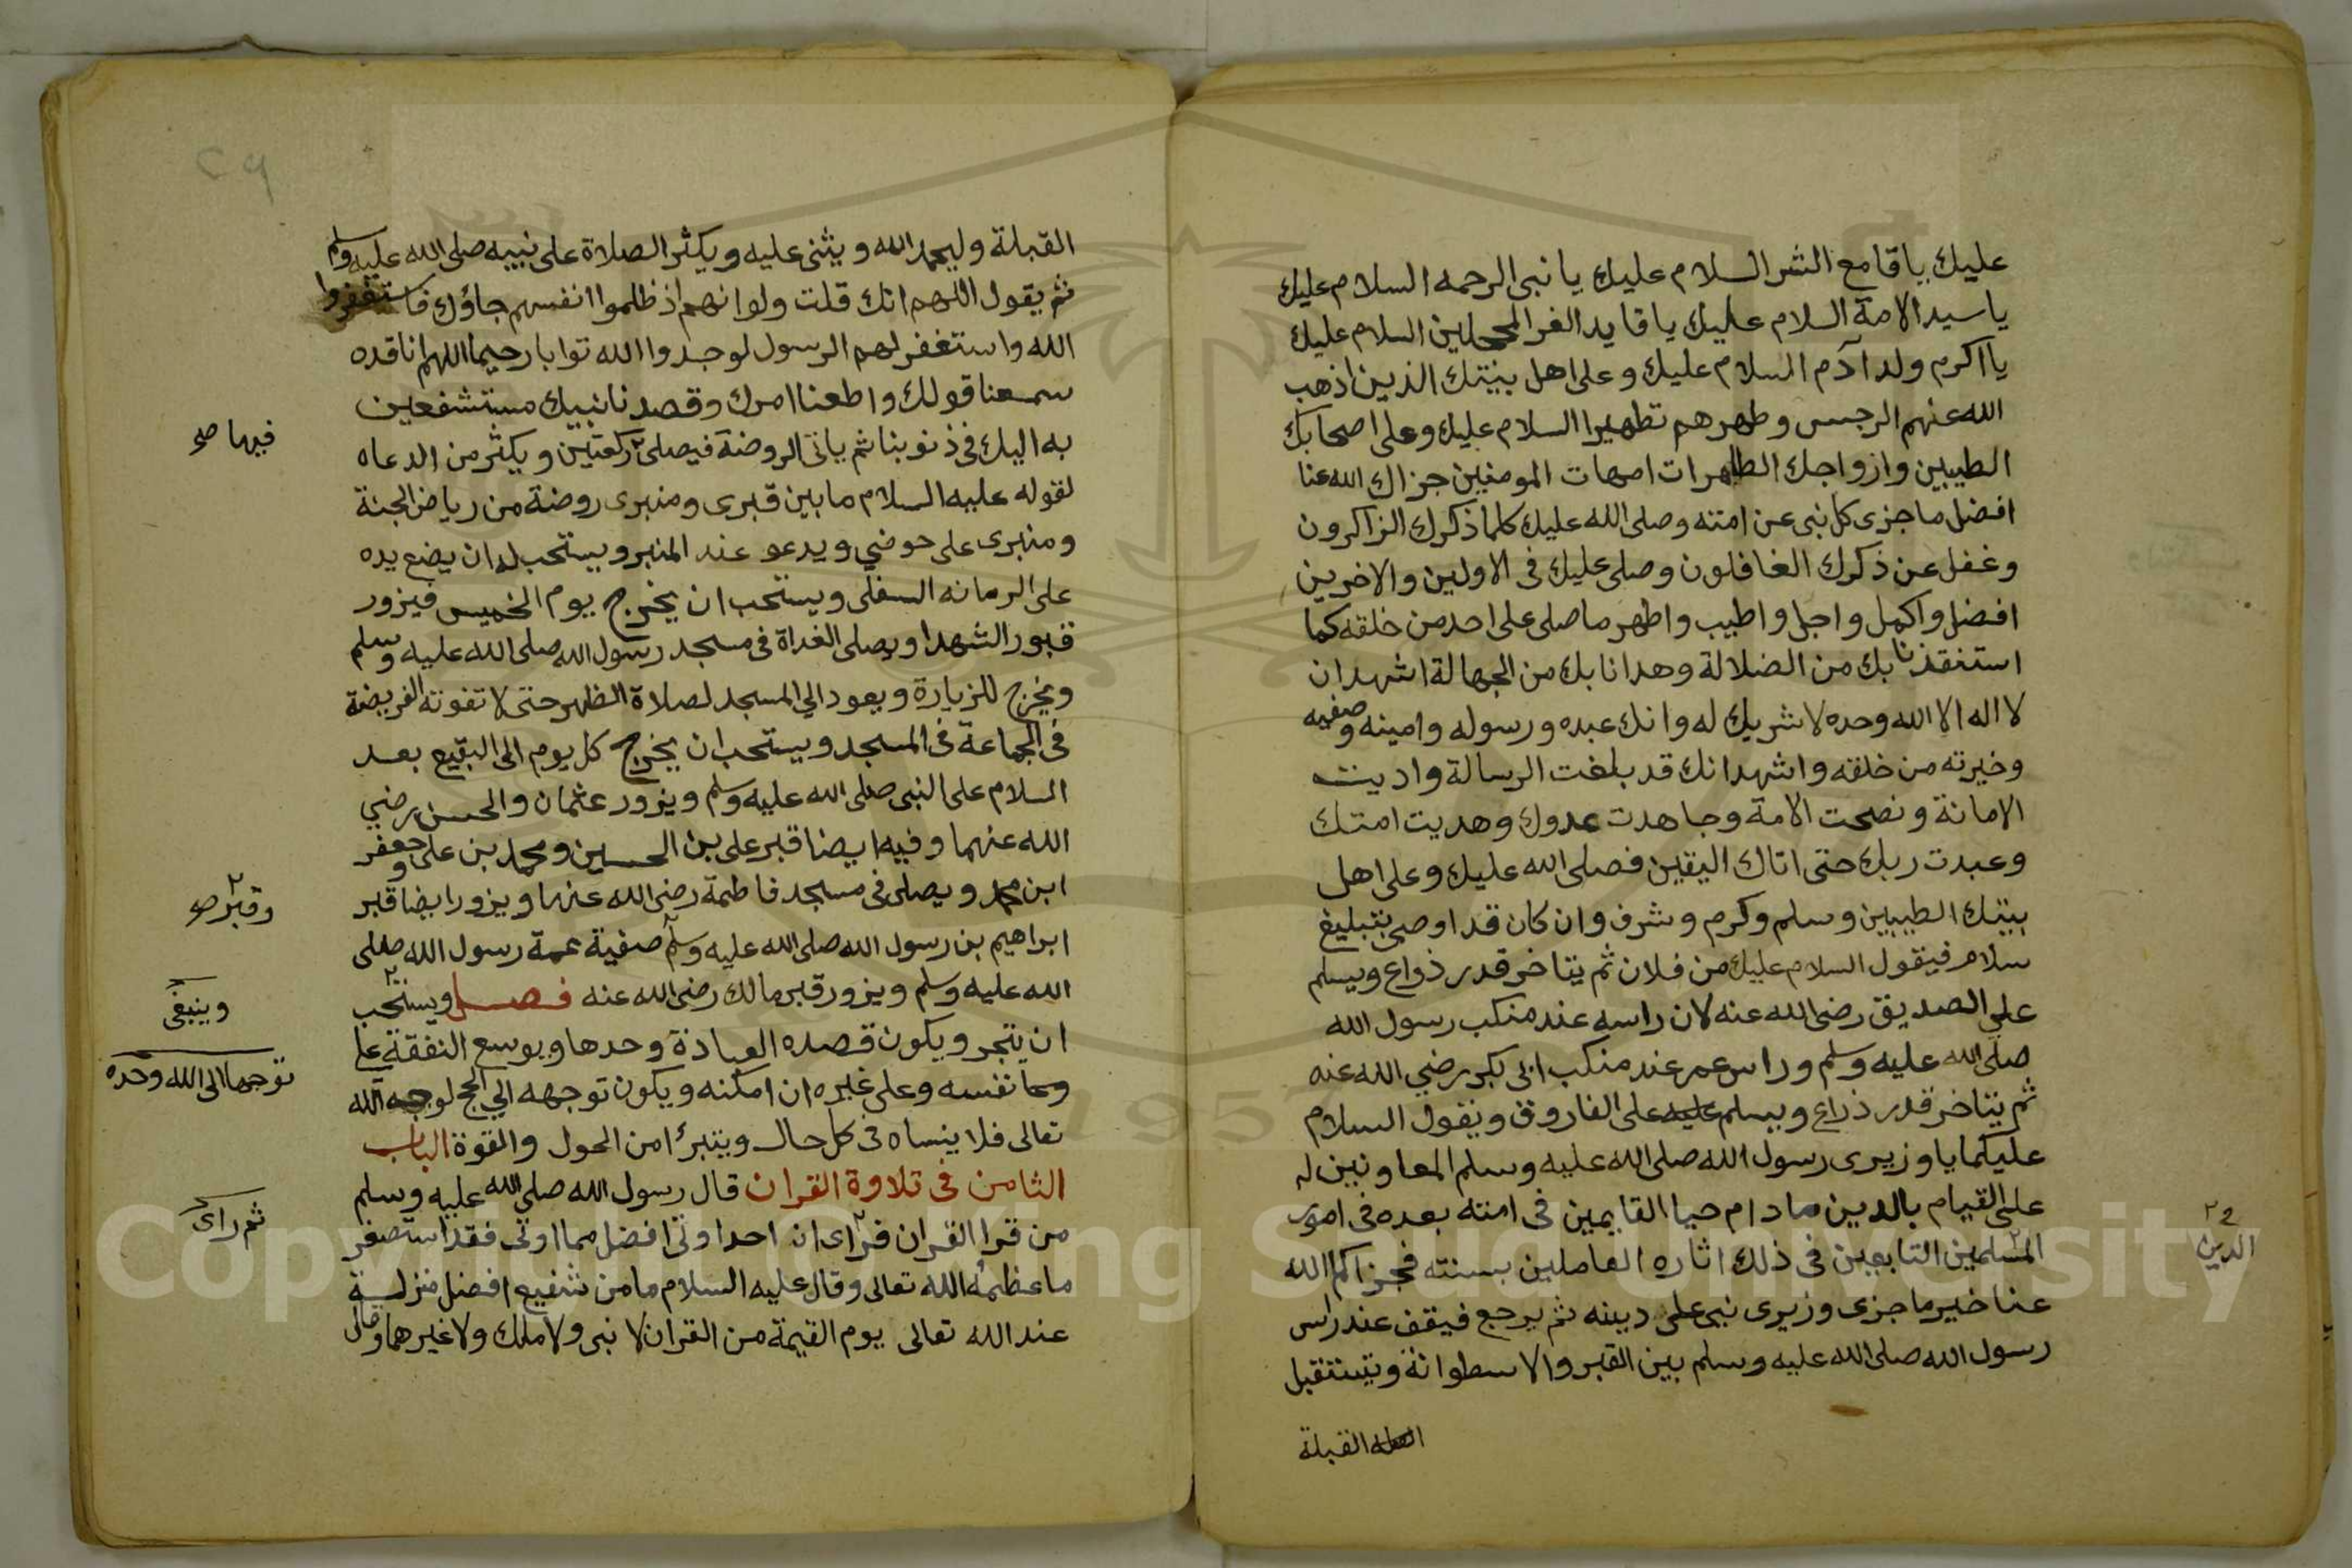 عليك ياقامع الشر السلام عليك يا نبي الرحمه السلام عليك
يا سيد الامة السلام عليك يا قايد الغر المحجلين السلام عليك
يا اكرم ولد آدم السلام عليك وعلى اهل بيتك الذين اذهب
الله عنهم الرجس وطهرهم تطهيرا السلام عليك وعلى اصحابك
الطيبين وازواجك الطاهرات امهات المومنين جزاك الله عنا
افضل ما جزى كل نبى عن امته وصلى الله عليك كلما ذكرك الزاكرون
وغفل عن ذكرك الغافلون وصلى عليك فى الاولين والاخرين
افضل واكمل واجل واطيب واطهر ما صلى على احد من خلقه كما
استنقذنا بك من الضلالة وهدانا بك من الجهالة اشهد ان
لا اله الا الله وحده لا شريك له وانك عبده ورسوله وامينه وصفيه
وخيرته من خلقه واشهد انك قد بلغت الرسالة واديت
الامانة ونصحت الامة وجاهدت عدوك وهديت امتك
وعبدت ربك حتى اتاك اليقين فصلى الله عليك وعلى اهل
بيتك الطيبين وسلم وكرم وشرف وان كان قد اوصى بتبليغ
سلام فيقول السلام عليك من فلان ثم يتاخر قدر ذراع ويسلم
على الصديق رضى الله عنه لان راسه عند منكب رسول الله
صلى الله عليه وسلم وراس عمر عند منكب ابى بكر رضي الله عنه
ثم يتاخر قدر ذراع ويسلم عليه على الفاروق ويقول السلام
عليكما يا وزيرى رسول الله صلى الله عليه وسلم المعاونين له
على القيام بالدين ما دام حيا القايمين فى امته بعده فى امور
الدين
المسلمين التابعين فى ذلك اثاره العاملين بسنته فجزاكم الله
عنا خير ما جزى وزيرى نبى على دينه ثم يرجع فيقف عند راس
رسول الله صلى الله عليه وسلم بين القبر والاسطوانة ويستقبل
القبلة
٢٩
القبلة وليحمد الله ويثنى عليه ويكثر الصلاة على نبيه صلى الله عليه وسلم
ثم يقول اللهم انك قلت ولو انهم اذ ظلموا انفسهم جاؤك فاستغفروا
الله واستغفر لهم الرسول لوجدوا الله توابا رحيما اللهم انا قده
سمعنا قولك واطعنا امرك وقصدنا نبيك مستشفعين
به اليك فى ذنوبنا ثم ياتى الروضة فيصلى ركعتين ويكثر من الدعاه
فيها صح
لقوله عليه السلام ما بين قبرى ومنبرى روضة من رياض الجنة
ومنبرى على حوضي ويدعو عند المنبر ويستحب له ان يضع يده
على الرمانه السفلى ويستحب ان يخرج يوم الخميس فيزور
قبور الشهدا ويصلى الغداة فى مسجد رسول الله صلى الله عليه وسلم
ويخرج للزيارة ويعود الي المسجد لصلاة الظهر حتى لا تفوته الفريضة
فى الجماعة فى المسجد ويستحب ان يخرج كل يوم الى البقيع بعد
السلام على النبى صلى الله عليه وسلم ويزور عثمان والحسن رضي
الله عنهما وفيه ايضا قبر على بن الحسين ومحمد بن على وجعفر
ابن محمد ويصلى فى مسجد فاطمة رضى الله عنها ويزور ايضا قبر
وقبر صح
ابراهيم بن رسول الله صلى الله عليه وسلم صفية عمة رسول الله صلى
الله عليه وسلم ويزور قبر مالك رضى الله عنه فصل ويستحب
وينبغى
ان يتجر ويكون قصده العبادة وحدها ويوسع النفقة على
نفسه وعلى غيره ان امكنه ويكون توجهه الي الحج لوجه الله
توجها الى الله وحده
تعالى فلا ينساه فى كل حال ويتبرأ من الحول والقوة الباب
الثامن فى تلاوة القران قال رسول الله صلى الله عليه وسلم
من قرا القران فراى ان احدا وتى افضل مما اوتى فقد استصغر
ثم راى
ما عظمه الله تعالى وقال عليه السلام ما من شفيع افضل منزلة
عند الله تعالى يوم القيمة من القران لا نبى ولا ملك ولا غيرهما وقال
Copyright © King Saud University
1957